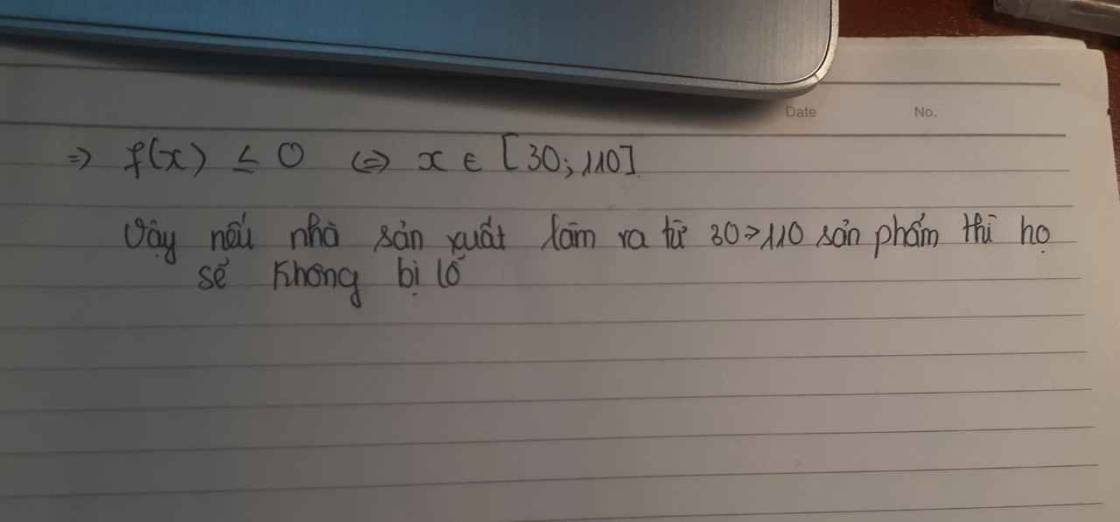 Date No.
⇒ f(x) ≤ 0 ⇔ x ∈ [30; 110]
Vậy nếu nhà sản xuất làm ra từ 30→110 sản phẩm thì họ
sẽ không bị lỗ